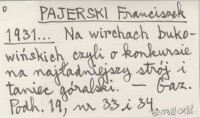 PAJERSKI Franciszek
1931... Na wirchach buko-
wińskich czyli o konkursie
na najładniejszy strój i
taniec góralski. — Gaz.
Podh. 19, nr 33 i 34.